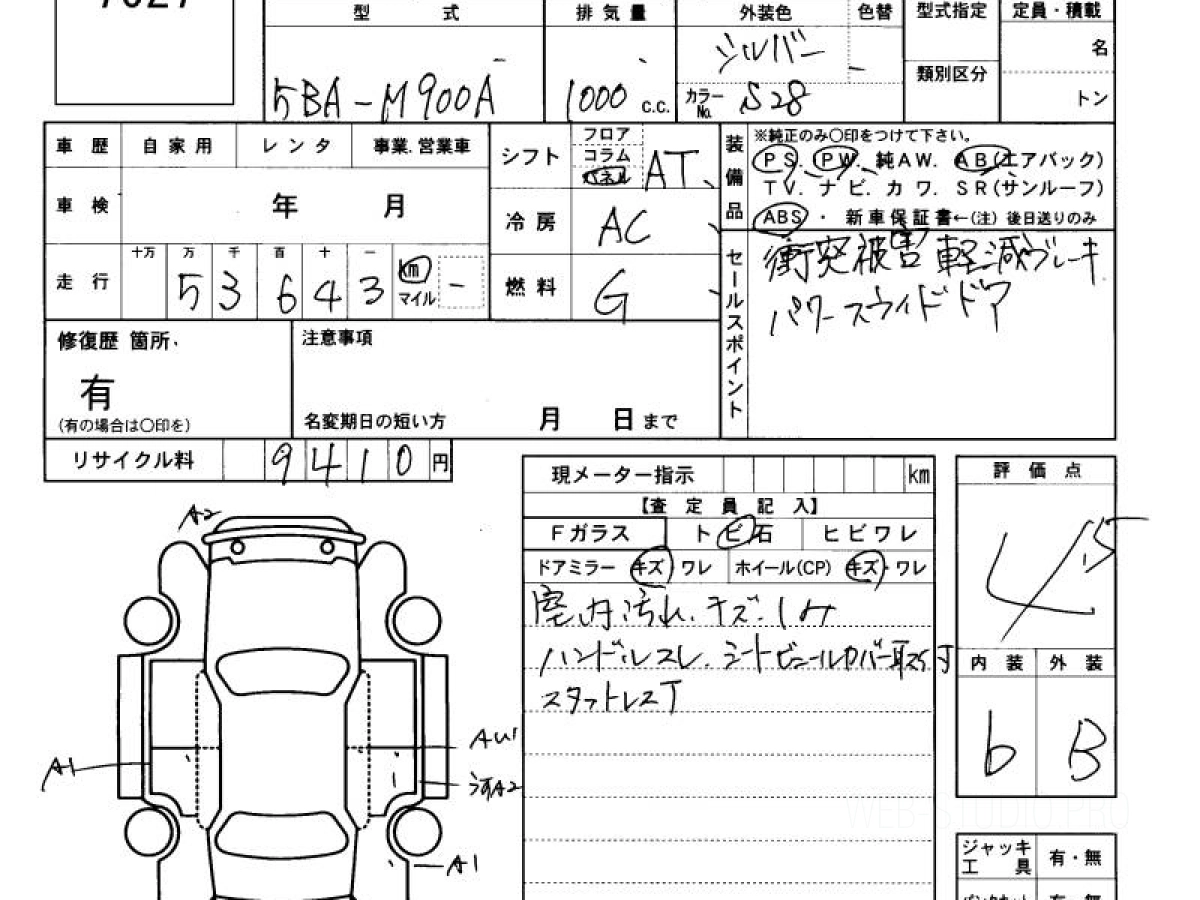 型 式 排 気 量 外装色 色替 型式指定 定員・積載
シルバー 名
類別区分
5BA-M900A 1000 c.c. カラーNo. S28 トン
車 歴 自 家 用 レ ン タ 事業.営業車
シフト フロア
コラム
パネル
AT
装備品
※純正のみ〇印をつけて下さい。
PS. PW. 純AW. AB(エアバック)
TV. ナ ビ. カ ワ. SR(サンルーフ)
ABS ・ 新車保証書←(注) 後日送りのみ
車 検 年 月
冷 房 AC
走 行 十万 万 千 百 十 一
5 3 6 4 3 km
マイル
-
燃 料 G
セールスポイント
衝突被害軽減ブレーキ
パワースライドドア
修復歴 箇所.
有
(有の場合は〇印を)
注意事項
名変期日の短い方 月 日 まで
リサイクル料 9 4 1 0 円
現メーター指示 km
【査 定 員 記 入】
Fガラス ト ビ 石 ヒ ビ ワ レ
ドアミラー キズ・ワレ ホイール(CP) キズ・ワレ
室内汚れ.キズ.シミ
ハンドルスレ.シートビニールカバー取
スタットレスT
評 価 点
4.5
内 装 外 装
b B
A2
A1
AU1
A2
A1
ジャッキ
工 具
有・無
WEB-STUDIO.PRO